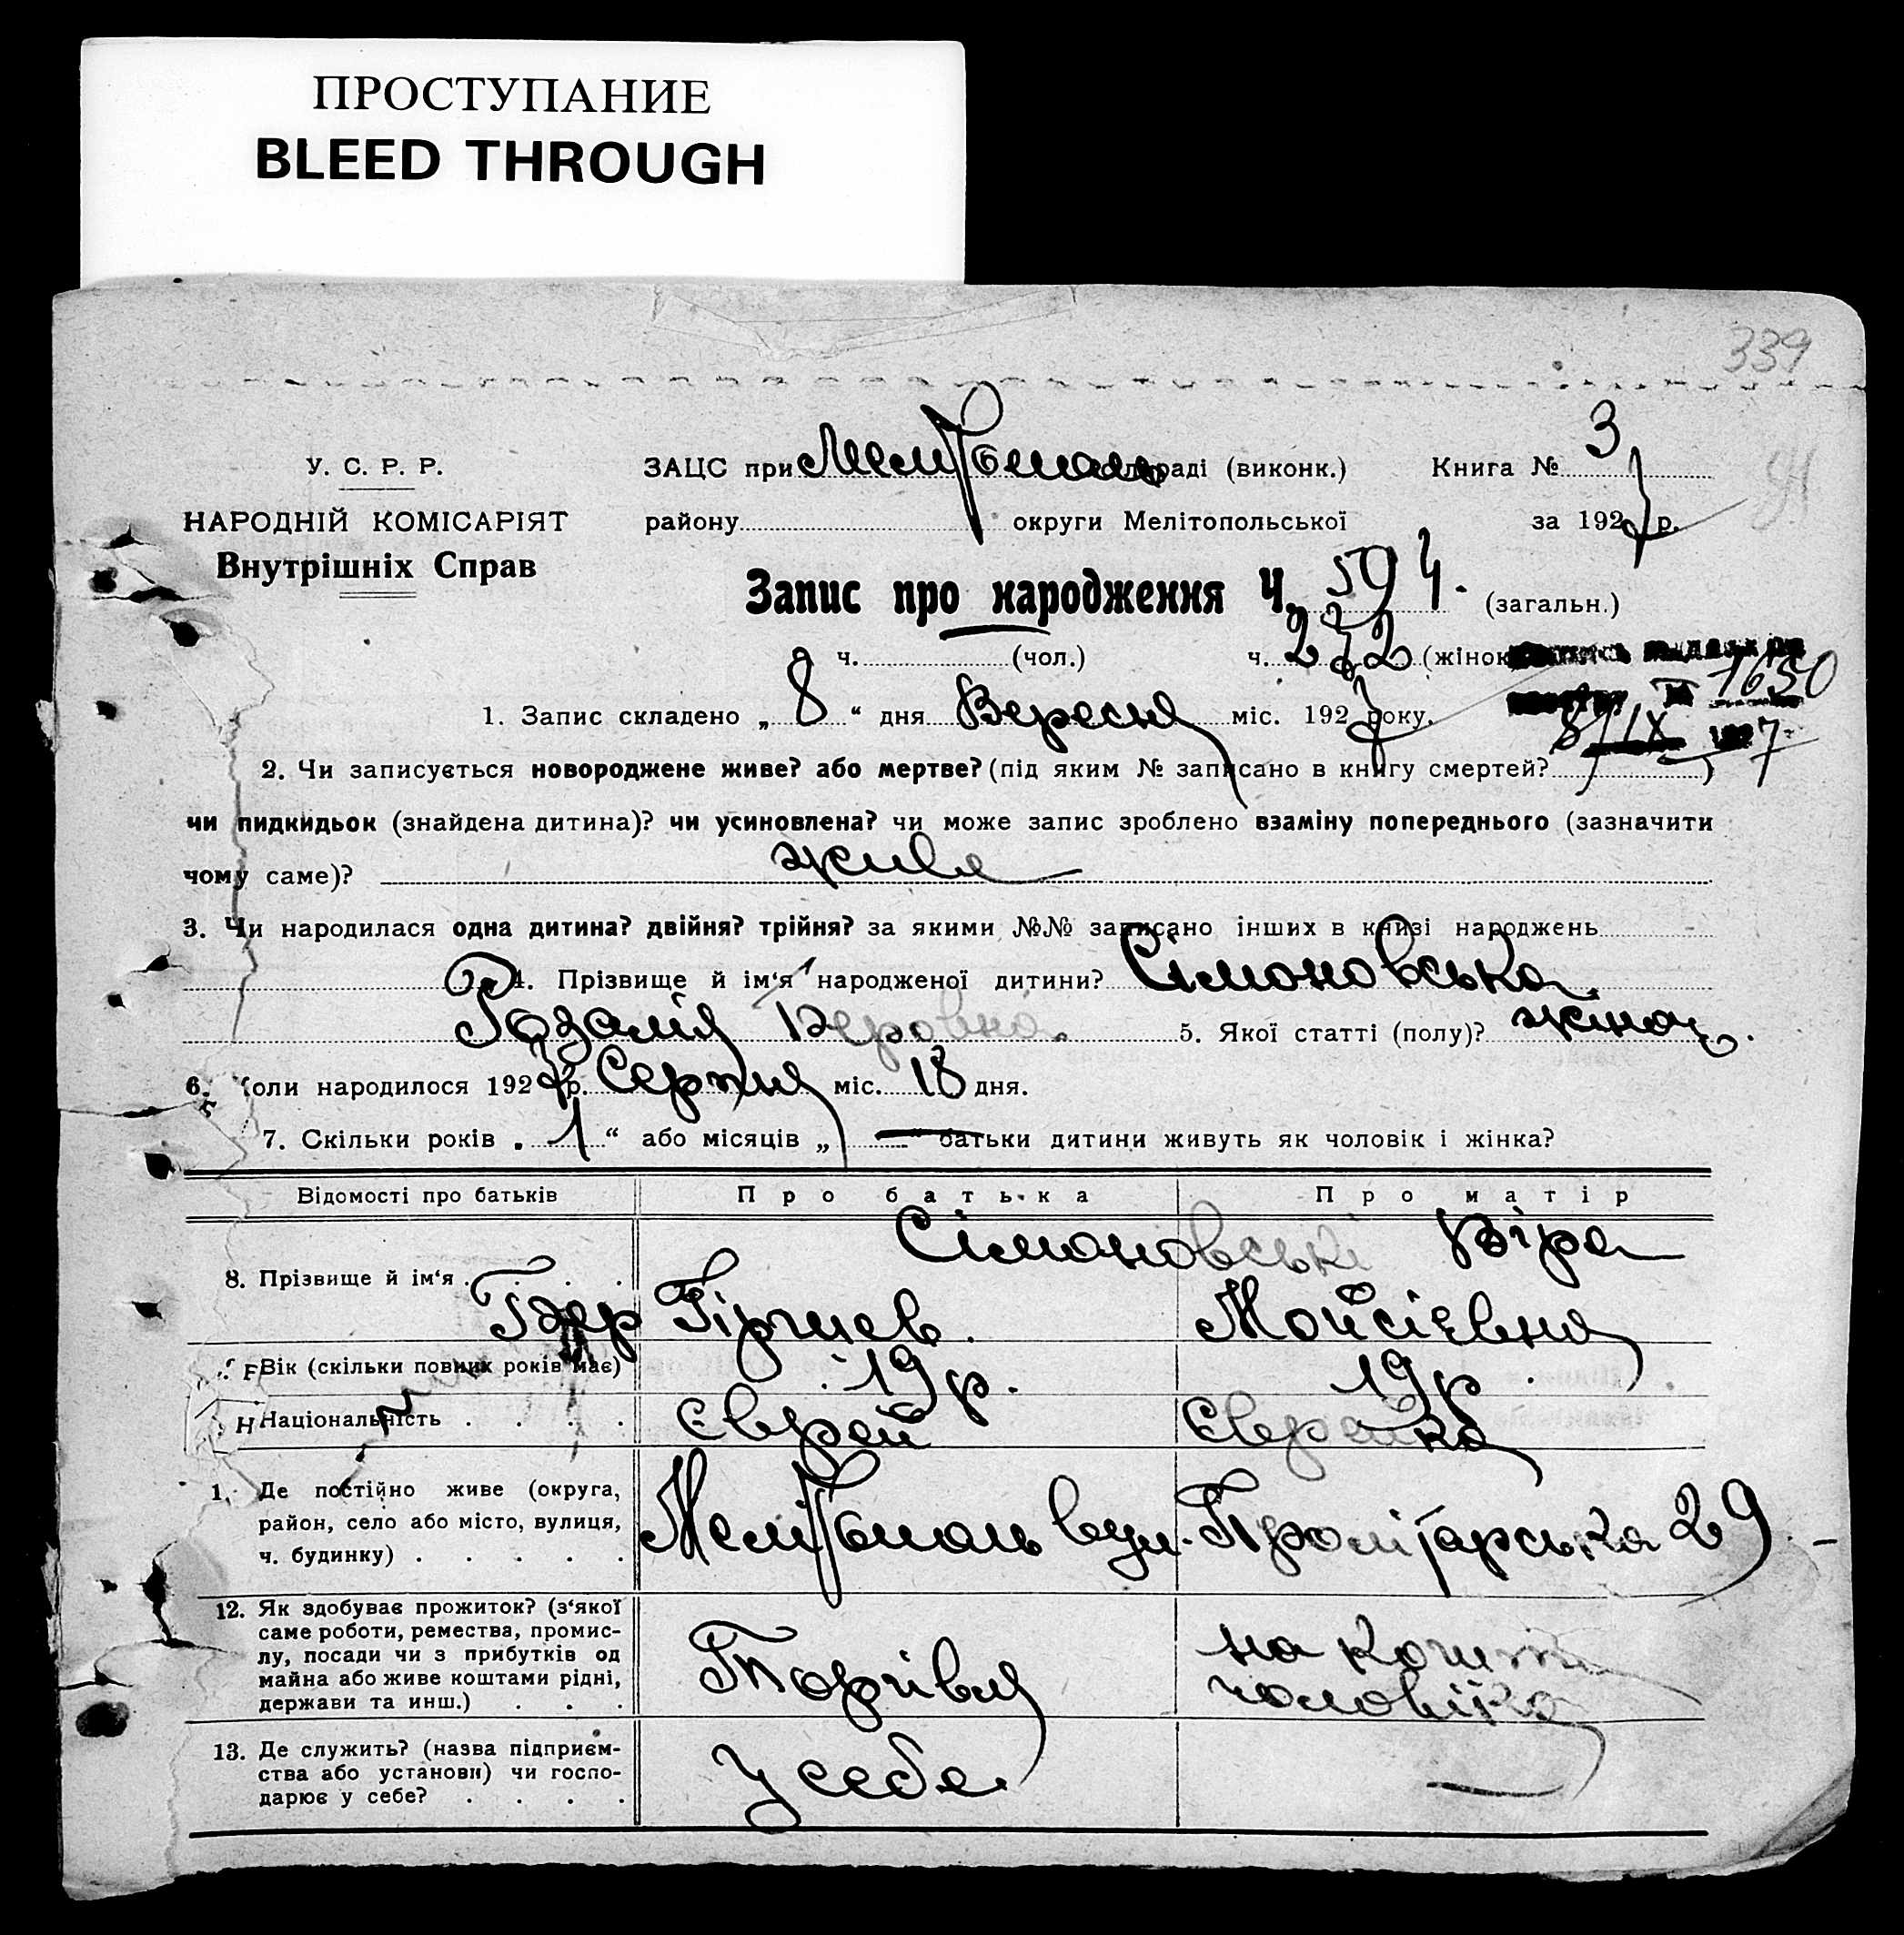 ПРОСТУПАНИЕ
BLEED THROUGH
339
У. С. Р. Р.
НАРОДНІЙ КОМІСАРІЯТ
Внутрішніх Справ
ЗАЦС при Мелітополь раді (виконк.) Книга № 3
району округи Мелітопольської за 1927 р.
Запис про народження Ч. 594. (загальн.)
ч. (чол.) ч. 272 (жінок
1650
1. Запис складено „ 8 “ дня Вересня міс. 1927 року.
8/IX 1927
2. Чи записується новороджене живе? або мертве? (під яким № записано в книгу смертей? )
чи пидкидьок (знайдена дитина)? чи усиновлена? чи може запис зроблено взаміну попереднього (зазначити
чому саме)? живе
3. Чи народилася одна дитина? двійня? трійня? за якими №№ записано інших в книзі народжень
4. Прізвище й ім‘я народженої дитини? Сімоновська
Розалія Беровна. 5. Якої статті (полу)? жіноч.
6. Коли народилося 1927 р. Серпня міс. 18 дня.
7. Скільки років „ 1 “ або місяців „ — “ батьки дитини живуть як чоловік і жінка?
Відомості про батьків Про батька Про матір
Сімоновські Віра
8. Прізвище й ім‘я . . . .
Гіршев. Мойсієвна
Вік (скільки повних років має) 19 р. 19 р.
Національність . . . . Єврей Єврейка
1. Де постійно живе (округа,
район, село або місто, вулиця,
ч. будинку) . . . . . Мелітополь вул. Пролітарська 29. –
12. Як здобуває прожиток? (з‘якої
саме роботи, ремества, промис-
лу, посади чи з прибутків од
майна або живе коштами рідні,
держави та инш.) . . . Торгівля на кошти чоловіка
13. Де служить? (назва підприєм-
ства або установи) чи госпо-
дарює у себе? . . . . У себе —